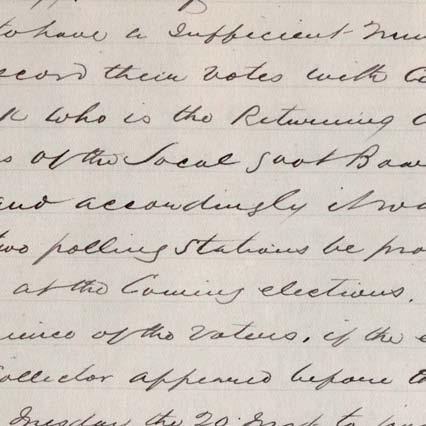 to have a sufficient num
ecord their votes with C
k who is the Returning O
s of the Local Govt Boar
and accordingly it wa
two polling Stations be pro
at the Coming elections.
nience of the Voters, if the e
Collector appeared before t
Tuesday the 20 Inst to